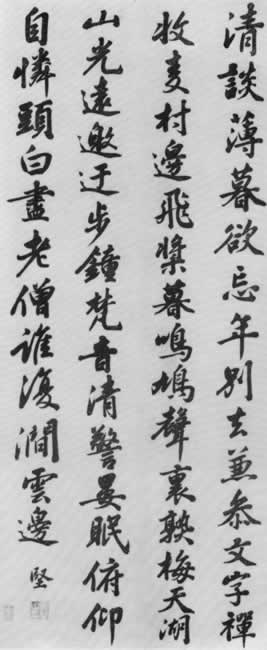 清談薄暮欲忘年別去兼叅文字禪
收麦村邊飛槳暮鳴鳩聲裏熟梅天湖
山光遠邀迂步鐘梵音清警晏眠俯仰
自憐頭白盡老僧誰復澗雲邊 堅